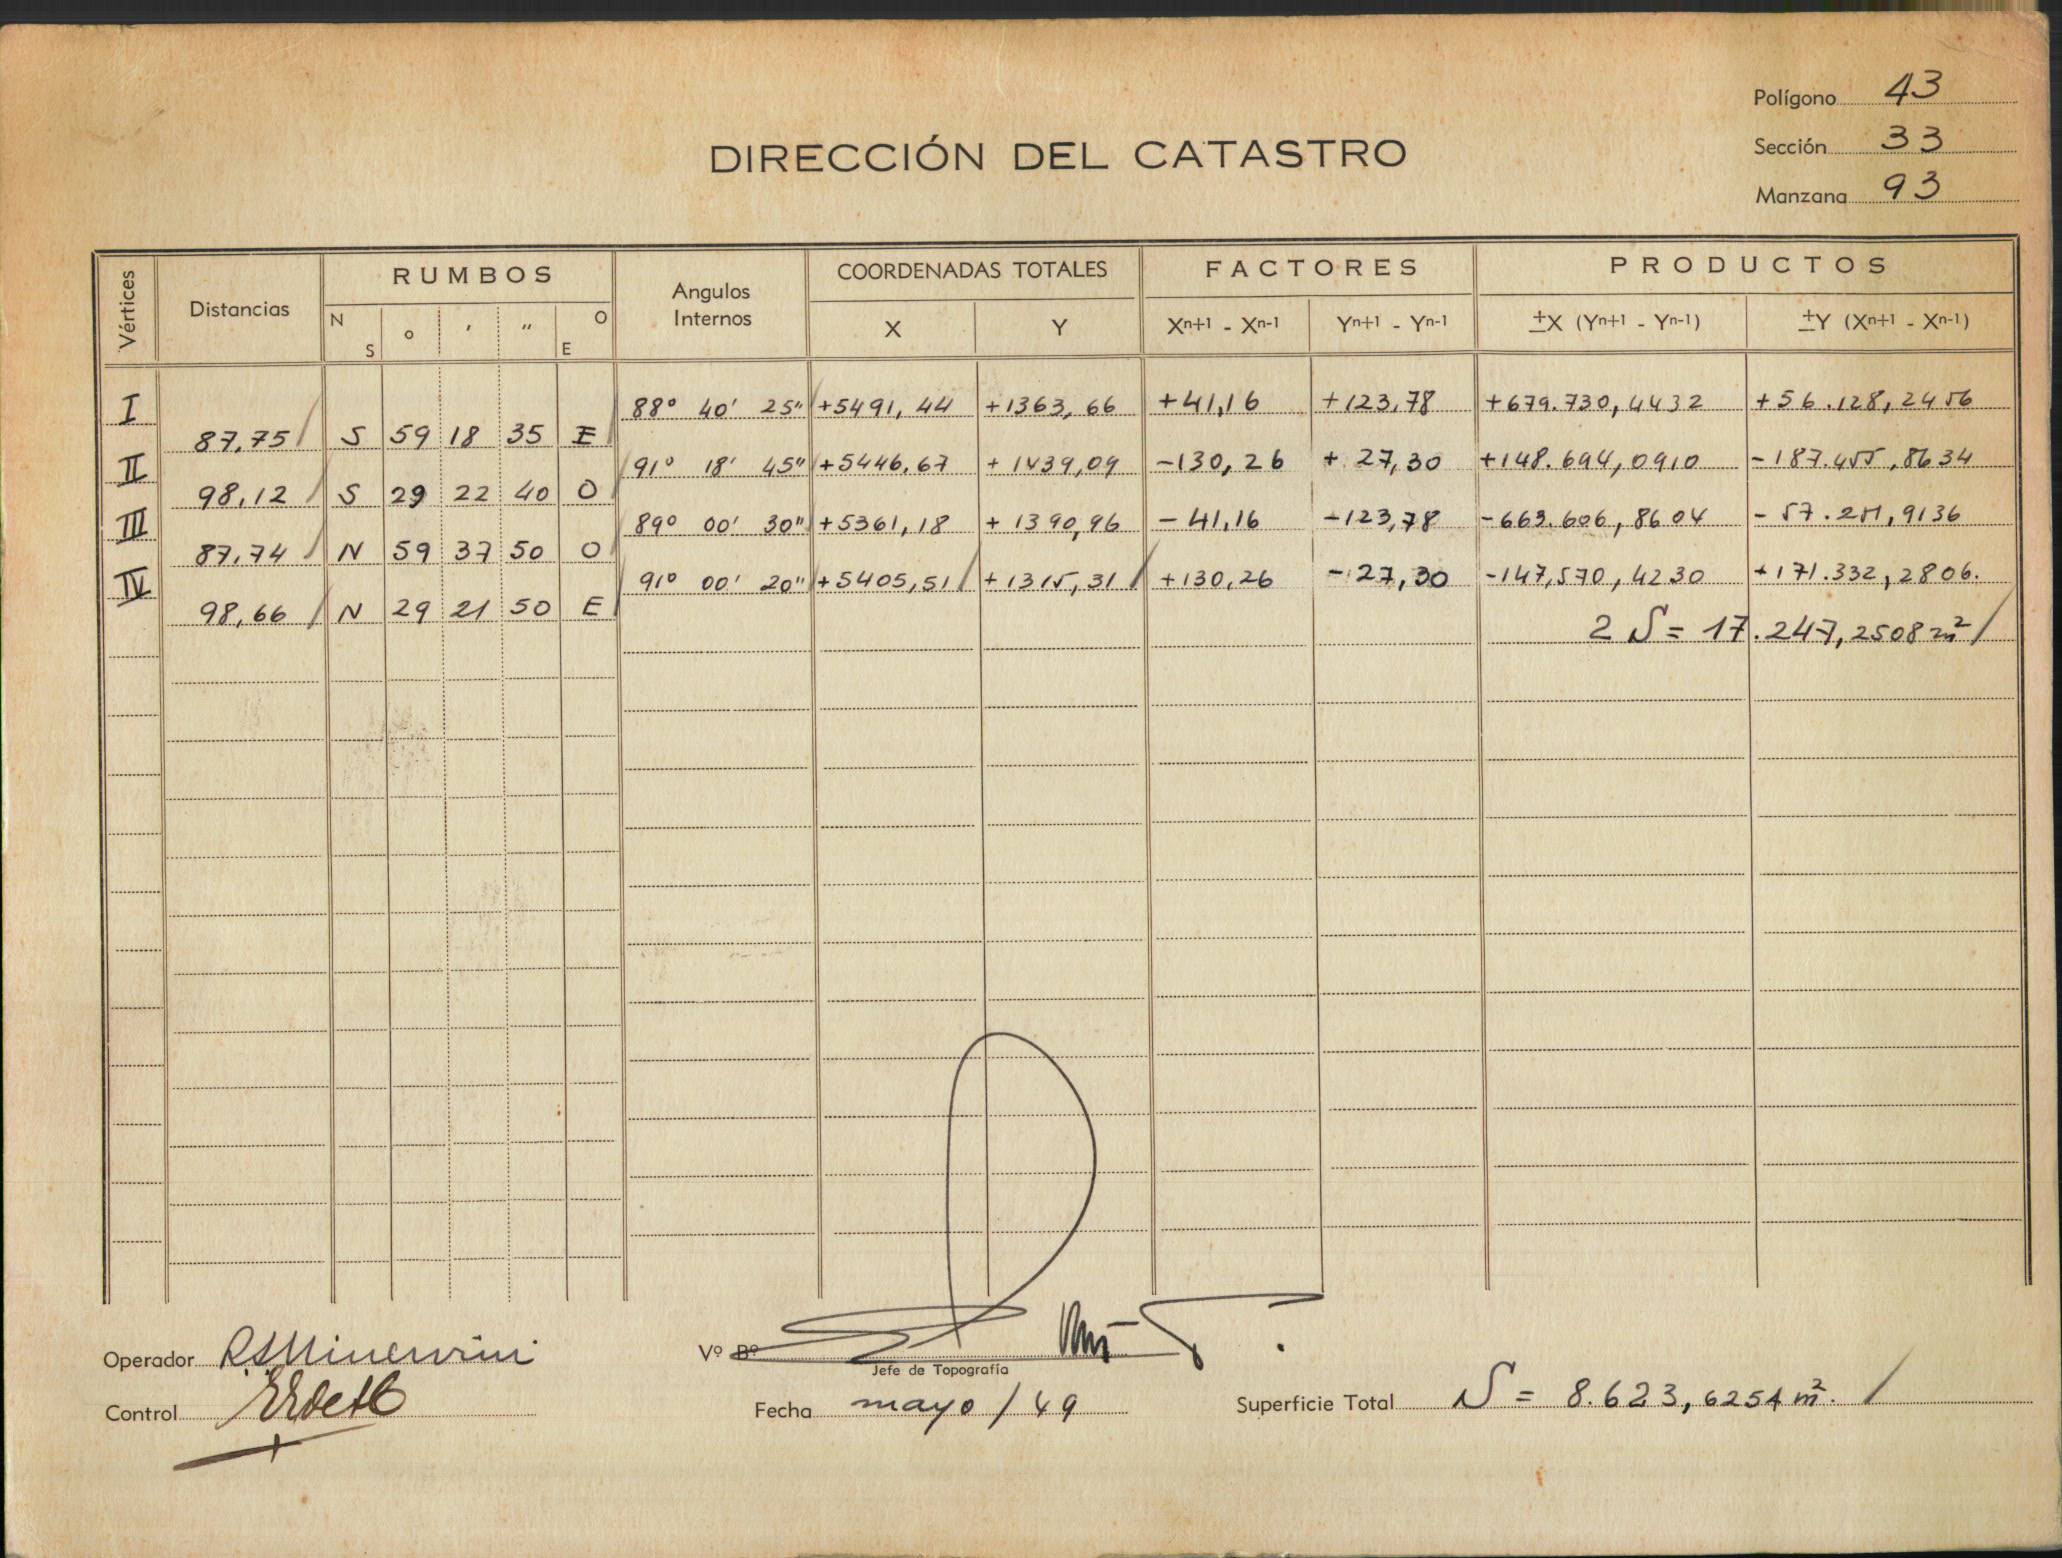 Polígono 43
DIRECCIÓN DEL CATASTRO
Sección 33
Manzana 93
Vértices Distancias RUMBOS Angulos Internos COORDENADAS TOTALES FACTORES PRODUCTOS
N S ° ' " O E X Y Xn+1 - Xn-1 Yn+1 - Yn-1 ±X (Yn+1 - Yn-1) ±Y (Xn+1 - Xn-1)
I 88° 40' 25" +5491,44 +1363,66 +41,16 +123,78 +679.730,4432 +56.128,2456
87,75 S 59 18 35 E
II 91° 18' 45" +5446,67 +1439,09 -130,26 +27,30 +148.694,0910 -187.455,8634
98,12 S 29 22 40 O
III 89° 00' 30" +5361,18 +1390,96 -41,16 -123,78 -663.606,8604 -57.251,9136
87,74 N 59 37 50 O
IV 91° 00' 20" +5405,51 +1315,31 +130,26 -27,30 -147,570,4230 +171.332,2806.
98,66 N 29 21 50 E
2 S = 17.247,2508 m²
Operador R.S.Minervini
Vº Bº
Jefe de Topografía
Control
Fecha mayo/49
Superficie Total S = 8.623,6254 m².